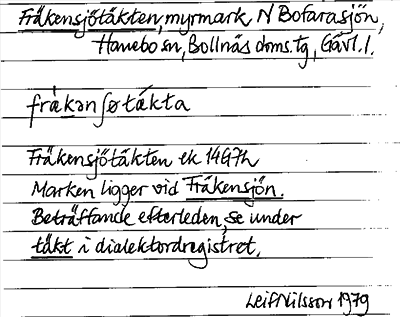 Fräkensjötäkten, myrmark, N Bofarasjön,
Hanebo sn, Bollnäs doms. tg, Gävl. l.
frä̀kən ʃøtákta
Fräkensjötäkten ek 14G7h
Marken ligger vid Fräkensjön.
Beträffande efterleden, se under
täkt i dialektordregistret.
Leif Nilsson 1979